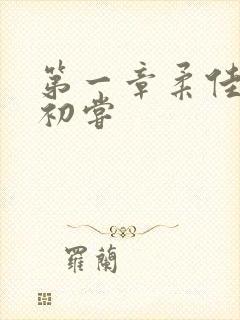 第一章柔佳
初嘗
羅蘭